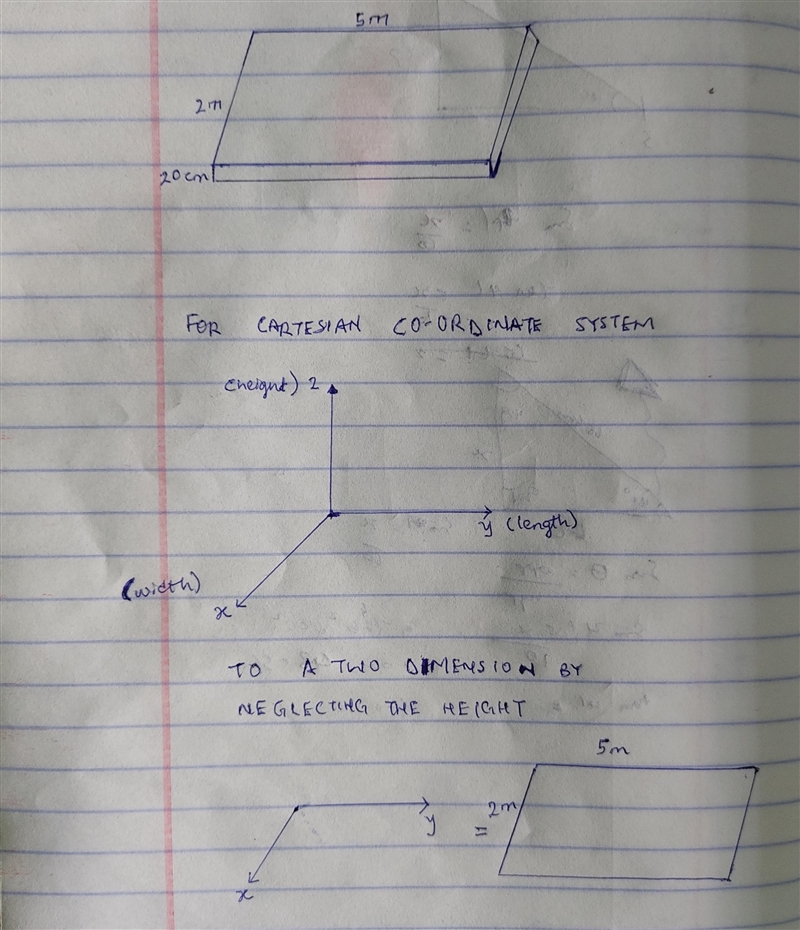 5m
2m
20cm
FOR CARTESIAN CO-ORDINATE SYSTEM
(height) z
y (length)
(width)
x
TO A TWO DIMENSION BY
NEGLECTING THE HEIGHT
5m
2m
y =
x